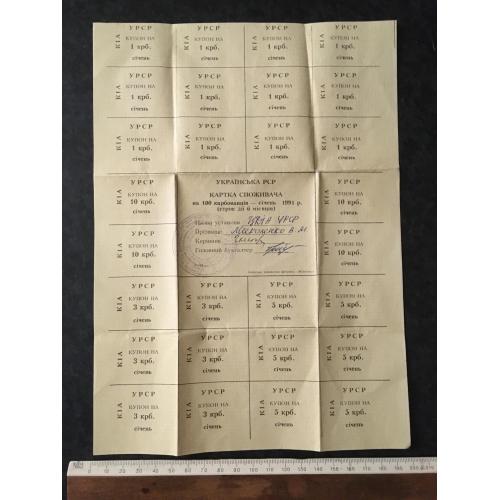 УРСР УРСР УРСР УРСР
КІА КУПОН НА КІА КУПОН НА КІА КУПОН НА КІА КУПОН НА
1 крб. 1 крб. 1 крб. 1 крб.
січень січень січень січень
УРСР УРСР УРСР УРСР
КІА КУПОН НА КІА КУПОН НА КІА КУПОН НА КІА КУПОН НА
1 крб. 1 крб. 1 крб. 1 крб.
січень січень січень січень
УРСР УРСР УРСР УРСР
КІА КУПОН НА КІА КУПОН НА КІА КУПОН НА КІА КУПОН НА
1 крб. 1 крб. 1 крб. 1 крб.
січень січень січень січень
УРСР
КІА КУПОН НА
10 крб.
січень
УРСР
КІА КУПОН НА
10 крб.
січень
УКРАЇНСЬКА РСР
КАРТКА СПОЖИВАЧА
на 100 карбованців — січень 1991 р.
(строк дії 6 місяців)
Назва установи УРСР
Прізвище В. М.
Керівник
Головний бухгалтер
УРСР
КІА КУПОН НА
10 крб.
січень
УРСР
КІА КУПОН НА
10 крб.
січень
УРСР УРСР УРСР УРСР
КІА КУПОН НА КІА КУПОН НА КІА КУПОН НА КІА КУПОН НА
3 крб. 3 крб. 5 крб. 5 крб.
січень січень січень січень
УРСР УРСР УРСР УРСР
КІА КУПОН НА КІА КУПОН НА КІА КУПОН НА КІА КУПОН НА
3 крб. 3 крб. 5 крб. 5 крб.
січень січень січень січень
УРСР УРСР УРСР УРСР
КІА КУПОН НА КІА КУПОН НА КІА КУПОН НА КІА КУПОН НА
3 крб. 3 крб. 5 крб. 5 крб.
січень січень січень січень